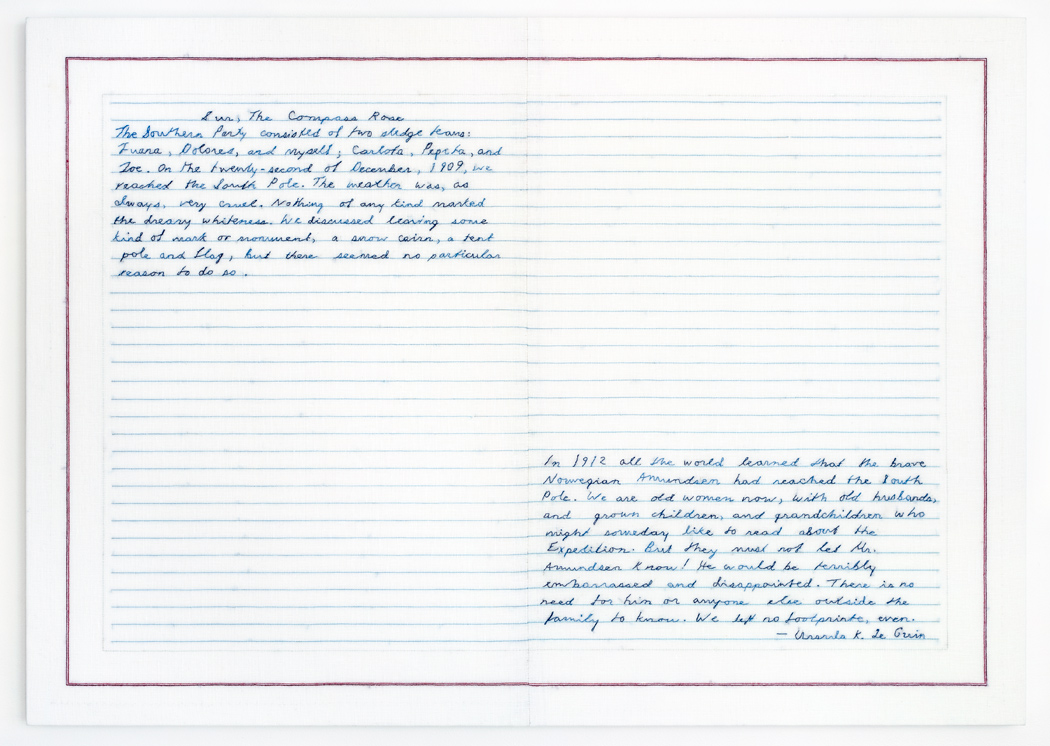 Sur, The Compass Rose
The Southern Party consisted of two sledge teams:
Juana, Dolores, and myself; Carlota, Pepita, and
Zoe. On the twenty-second of December, 1909, we
reached the South Pole. The weather was, as
always, very cruel. Nothing of any kind marked
the dreary whiteness. We discussed leaving some
kind of mark or monument, a snow cairn, a tent
pole and flag, but there seemed no particular
reason to do so.
In 1912 all the world learned that the brave
Norwegian Amundsen had reached the South
Pole. We are old women now, with old husbands,
and grown children, and grandchildren who
might someday like to read about the
Expedition. But they must not let Mr.
Amundsen know! He would be terribly
embarrassed and disappointed. There is no
need for him or anyone else outside the
family to know. We left no footprints, even.
— Ursula K. Le Guin